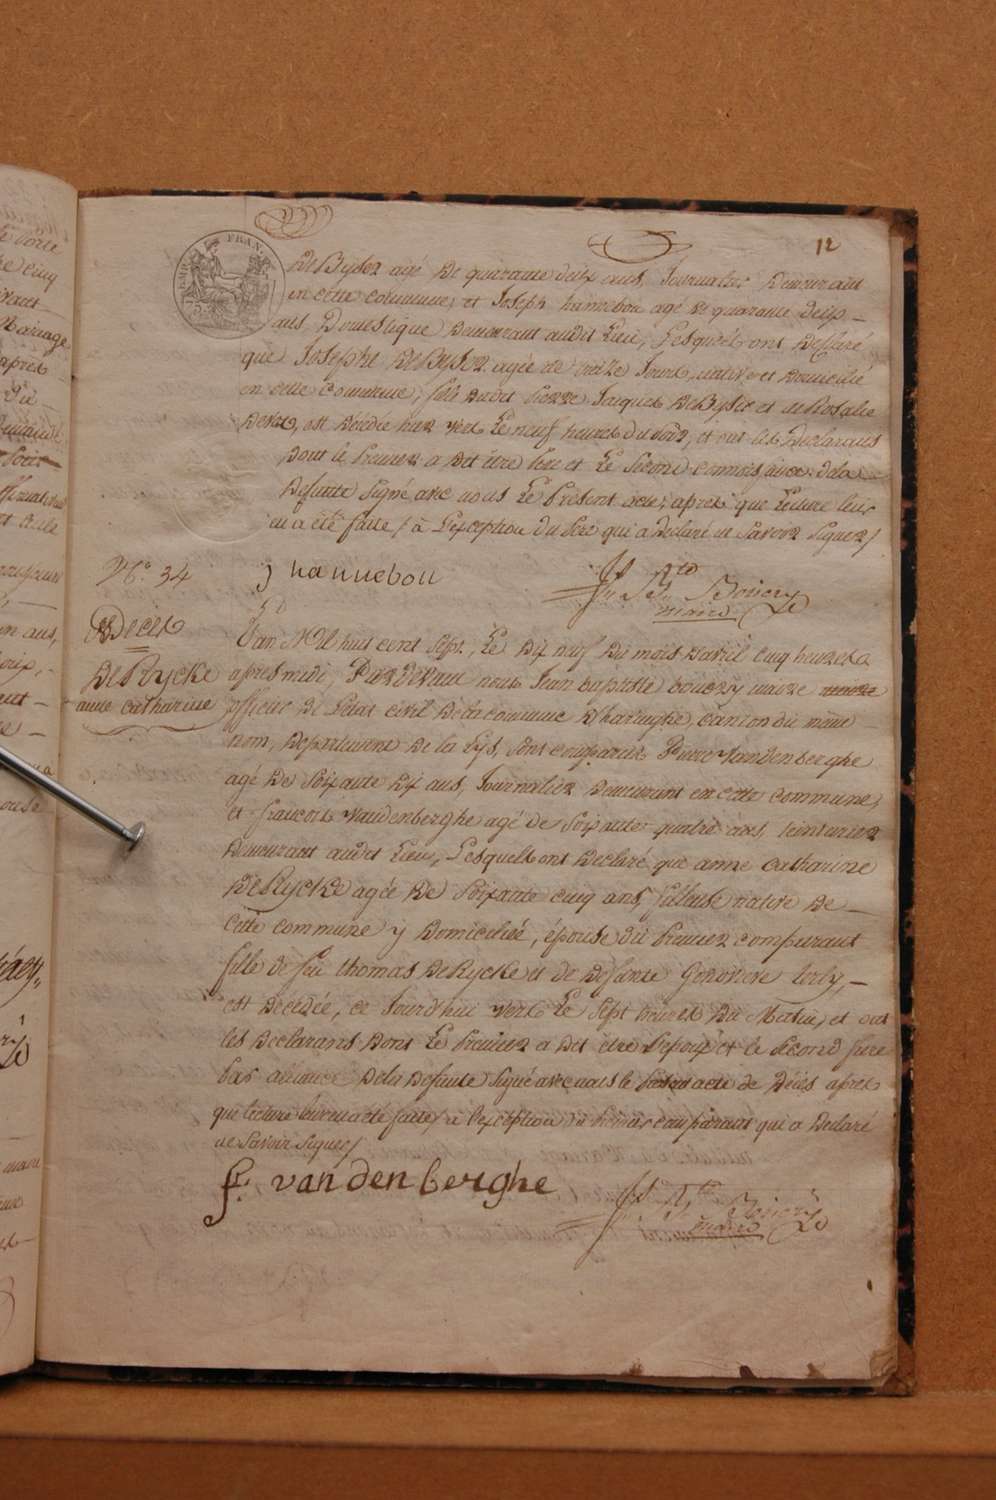 12
DeByser agé de quarante deux ans, Journalier Demeurant
en cette commune, et Joseph hannebou agé de quarante deux
ans Domestique Demeurant audit Lieu, Lesquels ont Déclaré
que Josephe DeByser agée de treize Jours, native et Domicilié
en cette Commune, fille Dudit Pierre Jacques DeByser et de Rosalie
est Décédée hier vers Le neuf heures du Soir, et ont les Declarans
Dont le Premier a Dit être Pere et Le Second connoissance dela
Defunte Signé avec nous Le Present acte, apres que Lecture leur
en a été faite / à L'exception du Pere qui a Declaré ne Savoir Signer /
N.° 34
J hannebou
J.n B.te Bouery
maire
Décés
DeRycke
anne Catharine
L'an Mil huit cent Sept, Le Dix neuf Du mois Davril cinq heures
apres midi, Pardevant nous Jean baptiste bouery maire
officier De L'état civil De la commune D'haringhe, canton du même
nom, Departement De la Lys, sont comparus Pierre Vandenberghe
agé De Soixante Dix ans, Journalier Demeurant en cette commune,
et françois Vandenberghe agé de Soixante quatre ans, teinturier
Demeurant audit Lieu, Lesquels ont Declaré que anne Catharine
DeRycke agée De Soixante cinq ans, fileuse native De
Cette commune y Domiciliée, épouse du Premier comparant
fille de feu thomas DeRycke et de Defunte Genovieve
est Décédée, ce Jourd'hui vers Le Sept heures Du Matin, et ont
les Declarans Dont Le Premier a Dit être Lepoux et le Second frere
par aliance Dela Defunte Signé avec nous le Present acte de Décés apres
que lecture leur en a été faite / à l'exception du Premier comparant qui a Declaré
ne Savoir Signer /
f. vandenberghe
J.n B.te Bouery
maire